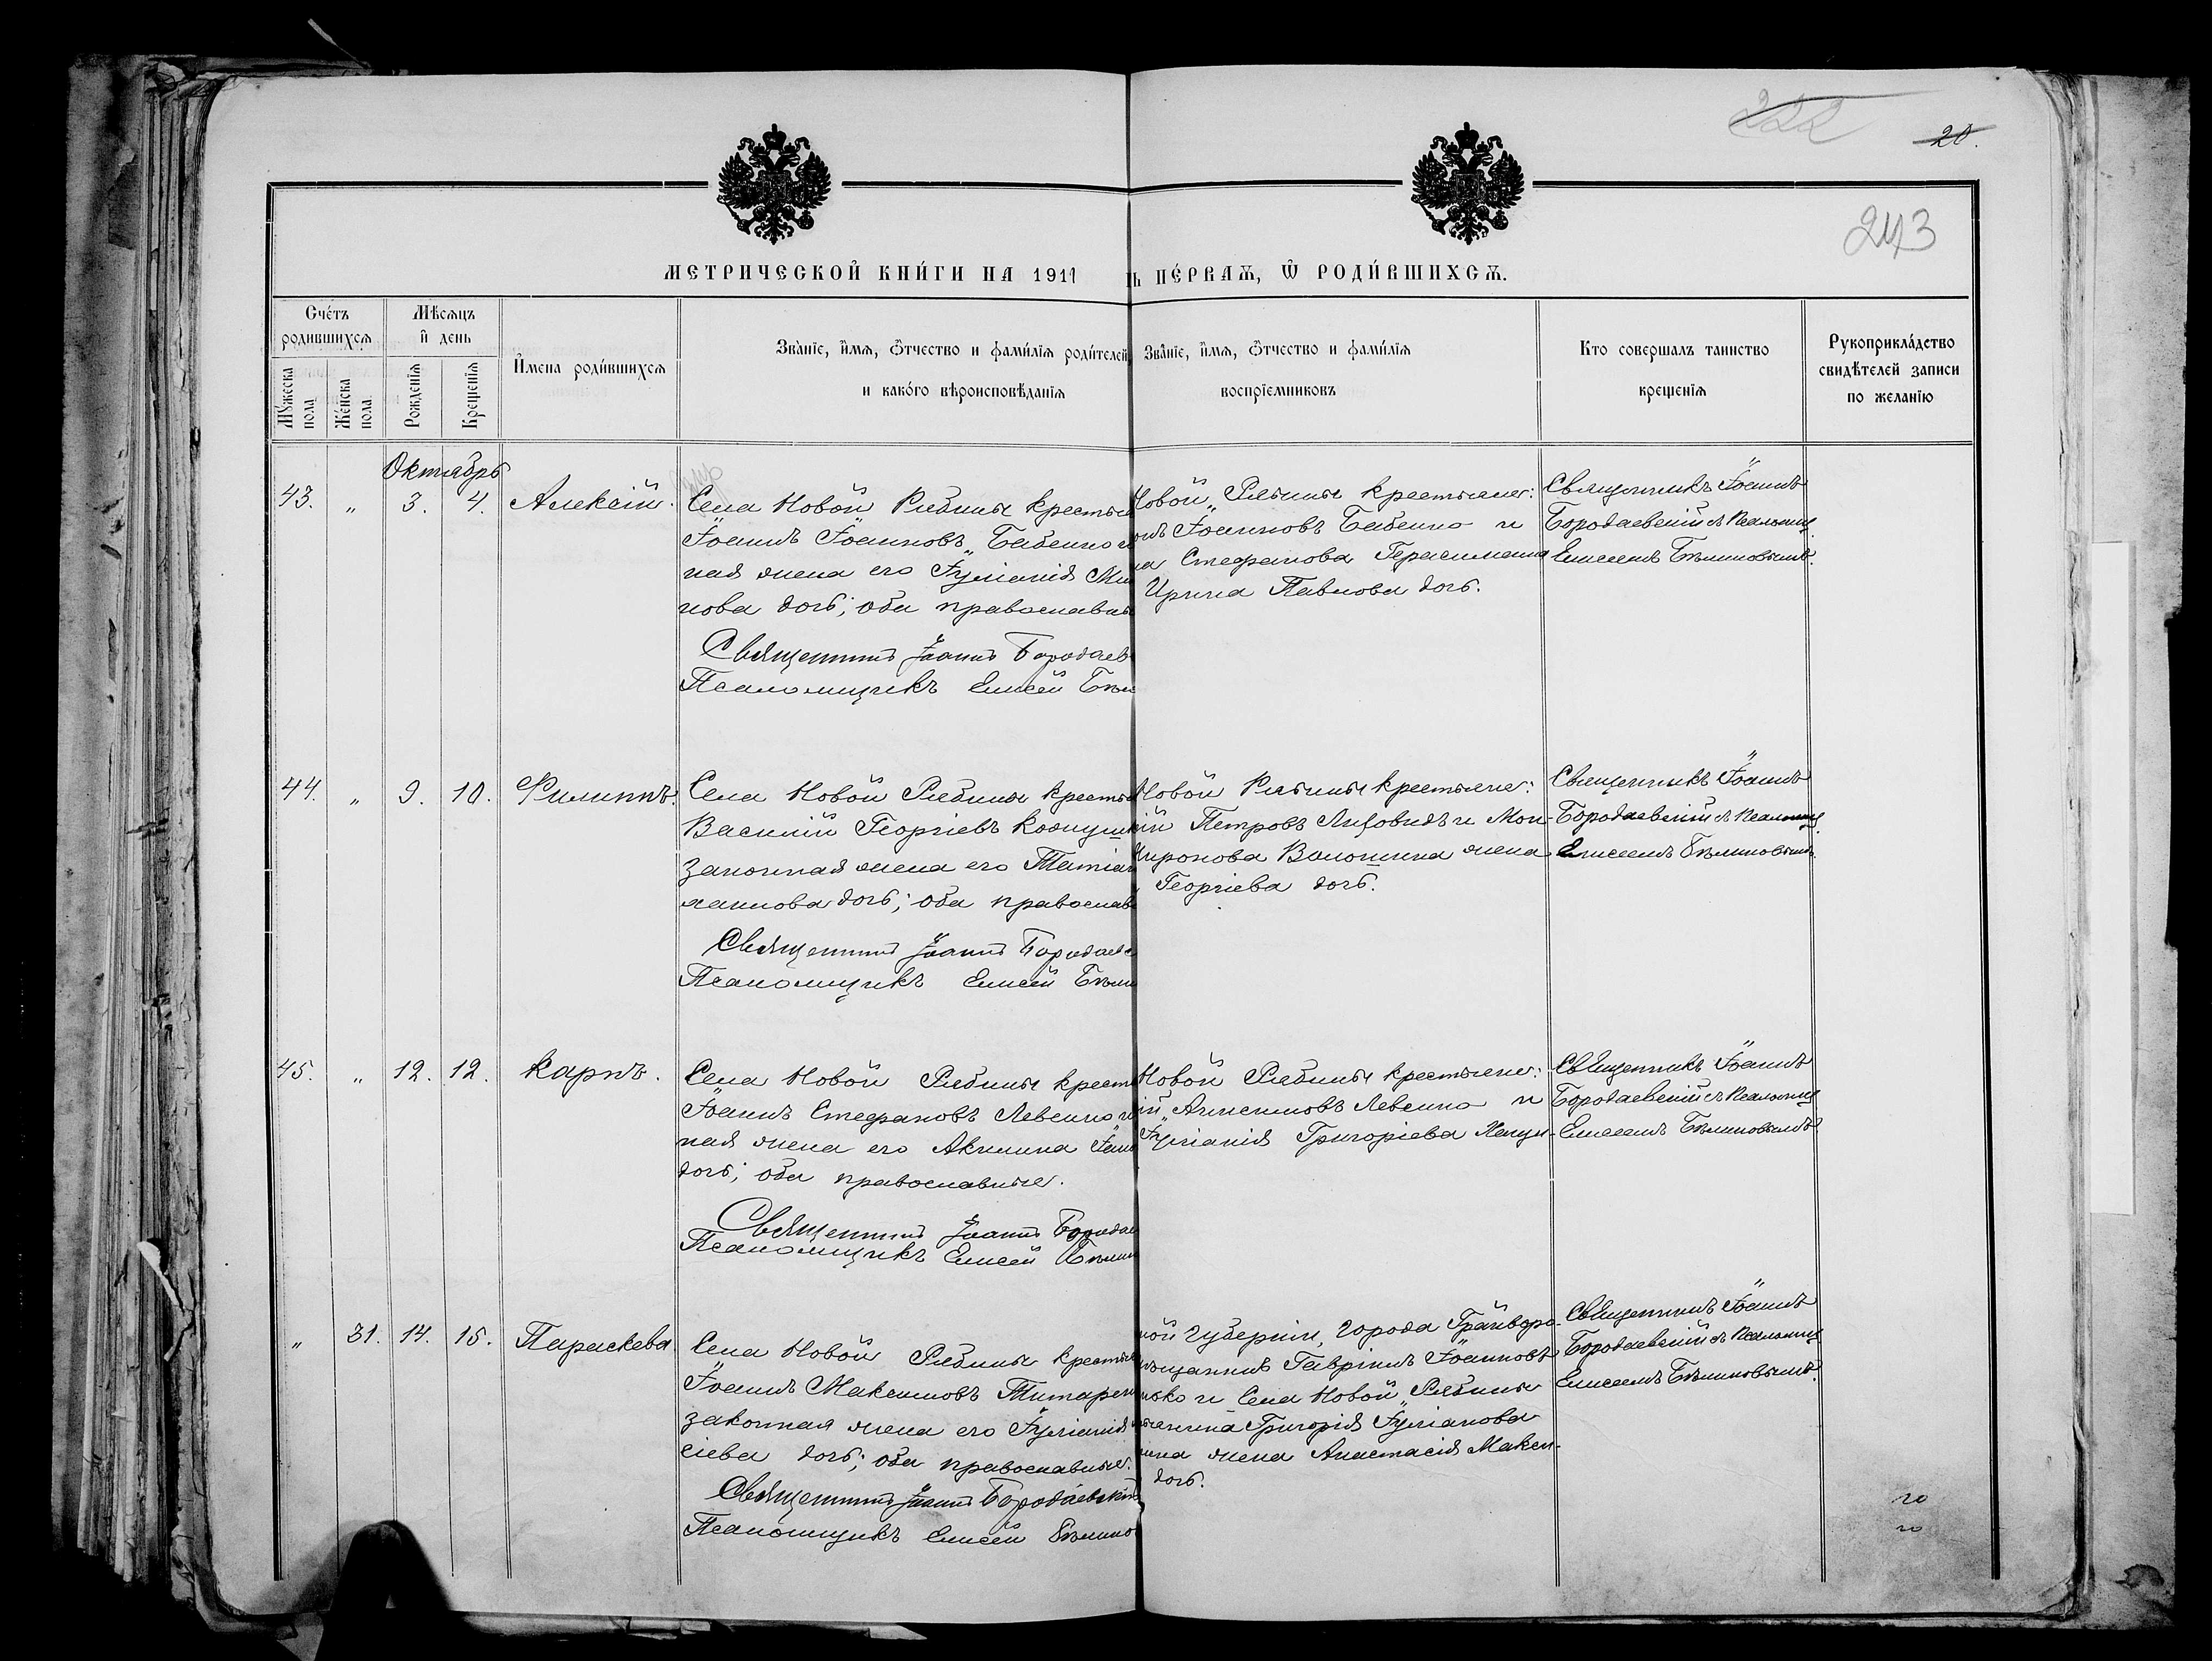 222
20.
243
МЕТРИЧЕСКОЙ КНИ́ГИ НА 1911
ПЕ́РВАѦ, Ѿ РОДИ́ВШИХСѦ.
Сче́тъ родившихсѧ
Мѣсѧцъ и день
Мꙋжеска пола
Же́нска пола
Рожденїѧ
Крещенїѧ
И҆мена роди́вшихсѧ
Зва́нїе, и҆мѧ, ѻ҆тчество и фами́лїѧ роди́телей,
и како́го вѣроисповѣ́данїѧ
Зва́нїе, и҆мѧ, ѻ҆тчество и фами́лїѧ
воспрїемниковъ
Кто совершалъ таинство
крещенїѧ
Рукоприкла́дство
свидѣ́телей записи
по желанїю
Октябрь
43. " 3. 4. Алексій.
Села Новой Рябины крестья
Іоаннъ Іоанновъ Бабенко и
ная жена его Іуліанія
нова дочь; оба православны
Священникъ Іоаннъ Бородаев
Псаломщикъ Елисей Бѣл
Новой Рябины крестьяне:
Іоанновъ Бабенко и
Стефанова Герасимова
Ирина Павлова дочь.
Священникъ Іоаннъ
Бородаевскій съ Псаломщ.
Елисеемъ Бѣлиновымъ.
44. " 9. 10. Филиппъ.
Села Новой Рябины крестья
Василій Георгіевъ
законная жена его Татіан
дочь; оба православ
Священникъ Іоаннъ Бородаевс
Псаломщикъ Елисей Бѣли
Новой Рябины крестьяне:
Петровъ и
Миронова Волошина жена
Георгіева дочь.
Священникъ Іоаннъ
Бородаевскій съ Псаломщ.
Елисеемъ Бѣлиновымъ.
45. " 12. 12. Карпъ.
Села Новой Рябины крестья
Іоаннъ Стефановъ Левенко и
ная жена его Акилина
дочь; оба православные.
Священникъ Іоаннъ Бородае
Псаломщикъ Елисей Бѣлин
Новой Рябины крестьяне:
Левенко и
Іуліанія Григоріева
Священникъ Іоаннъ
Бородаевскій съ Псаломщ
Елисеемъ Бѣлиновымъ
" 31. 14. 15. Параскева.
Села Новой Рябины крестья
Іоаннъ Максимовъ Титарен
законная жена его Іуліанія
сіева дочь; оба православные.
Священникъ Іоаннъ Бородаевскій
Псаломщикъ Елисей Бѣлино
ной губерніи, города Грайворо-
мѣщанинъ Гавріилъ Іоанновъ
и Села Новой Рябины
Григорія Іуліанова
жена Анастасія Макси-
дочь.
Священникъ Іоаннъ
Бородаевскій съ Псаломщ
Елисеемъ Бѣлиновымъ.